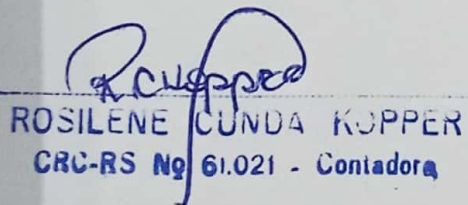 ROSILENE CUNDA KOPPER
CRC-RS Nº 61.021 - Contadora